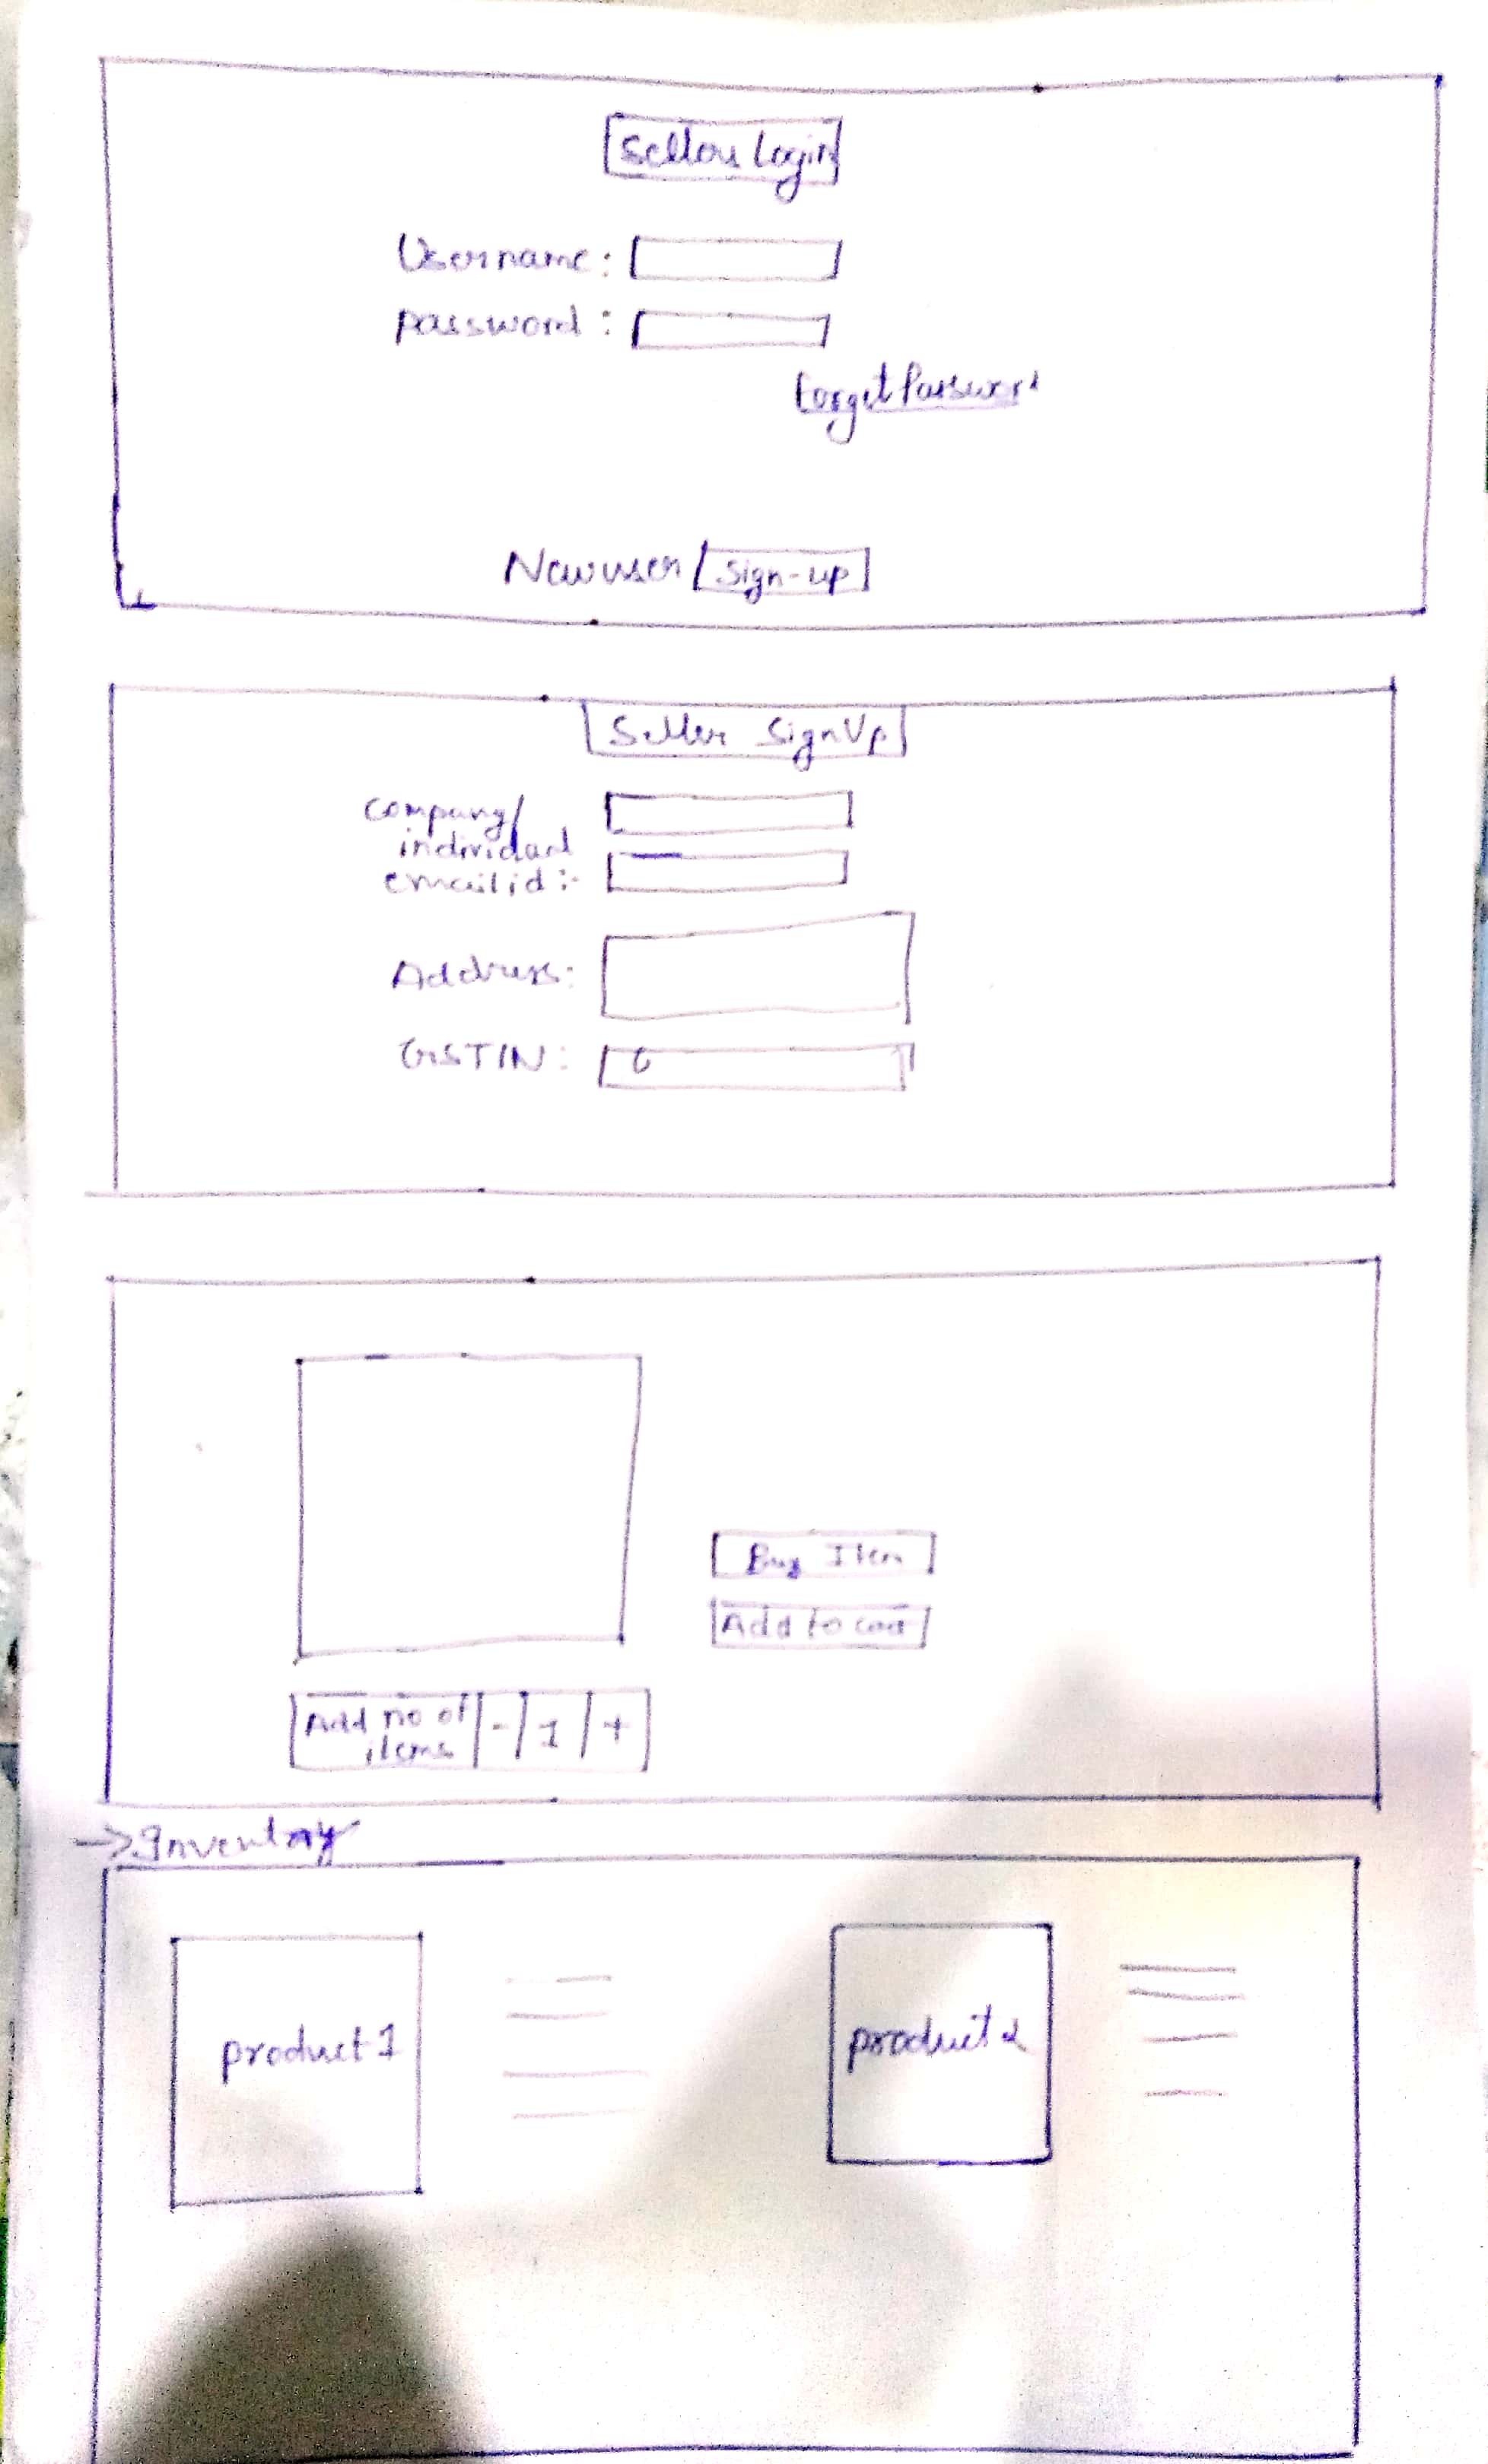 Sellers Login
Username :
password :
forget Password
New user Sign-up
Seller SignUp
company/
individual
email id :-
Address:
GSTIN: G
Buy Item
Add to cart
Add no of - 1 +
items
→ Inventory
product 1
product 2